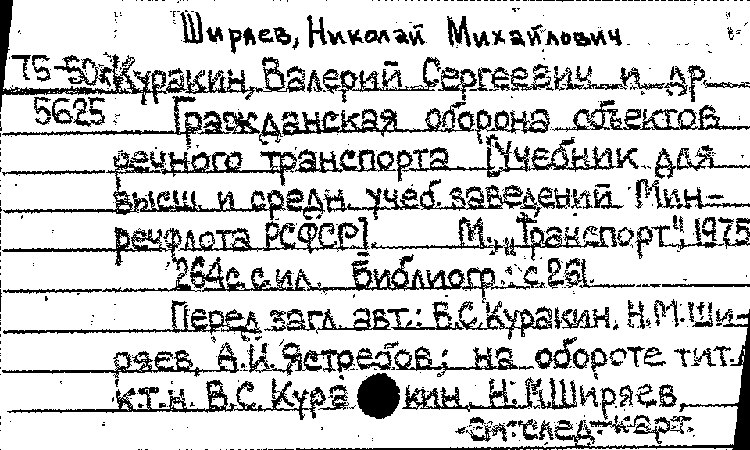 Ширяев, Николай Михайлович
75-50к Куракин, Валерий Сергеевич и др.
5625 Гражданская оборона объектов
речного транспорта [Учебник для
высш. и средн. учеб. заведений Мин-
речфлота РСФСР]. М., "Транспорт", 1975
264с. с ил. Библиогр.: с. 261.
Перед загл. авт.: В.С. Куракин, Н.М. Ши-
ряев, А.И. Ястребов; на обороте тит. л.
к.т.н. В.С. Куракин, Н.М. Ширяев,
см. след. карт.